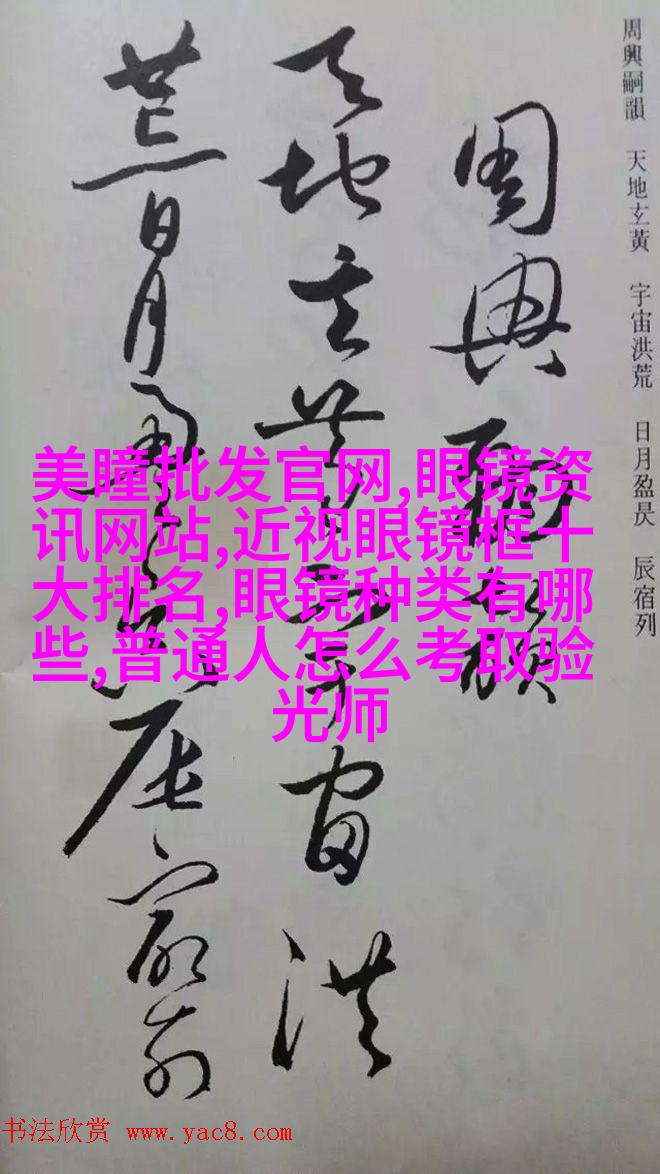 周興嗣韻 天地玄黃 宇宙洪荒 日月盈昃 辰宿列
周興嗣韻
天地玄黃宇宙洪
荒日月盈昃辰宿列
美瞳批发官网,眼镜资
讯网站,近视眼镜框十
大排名,眼镜种类有哪
些,普通人怎么考取验
光师
书法欣赏 www.yac8.com